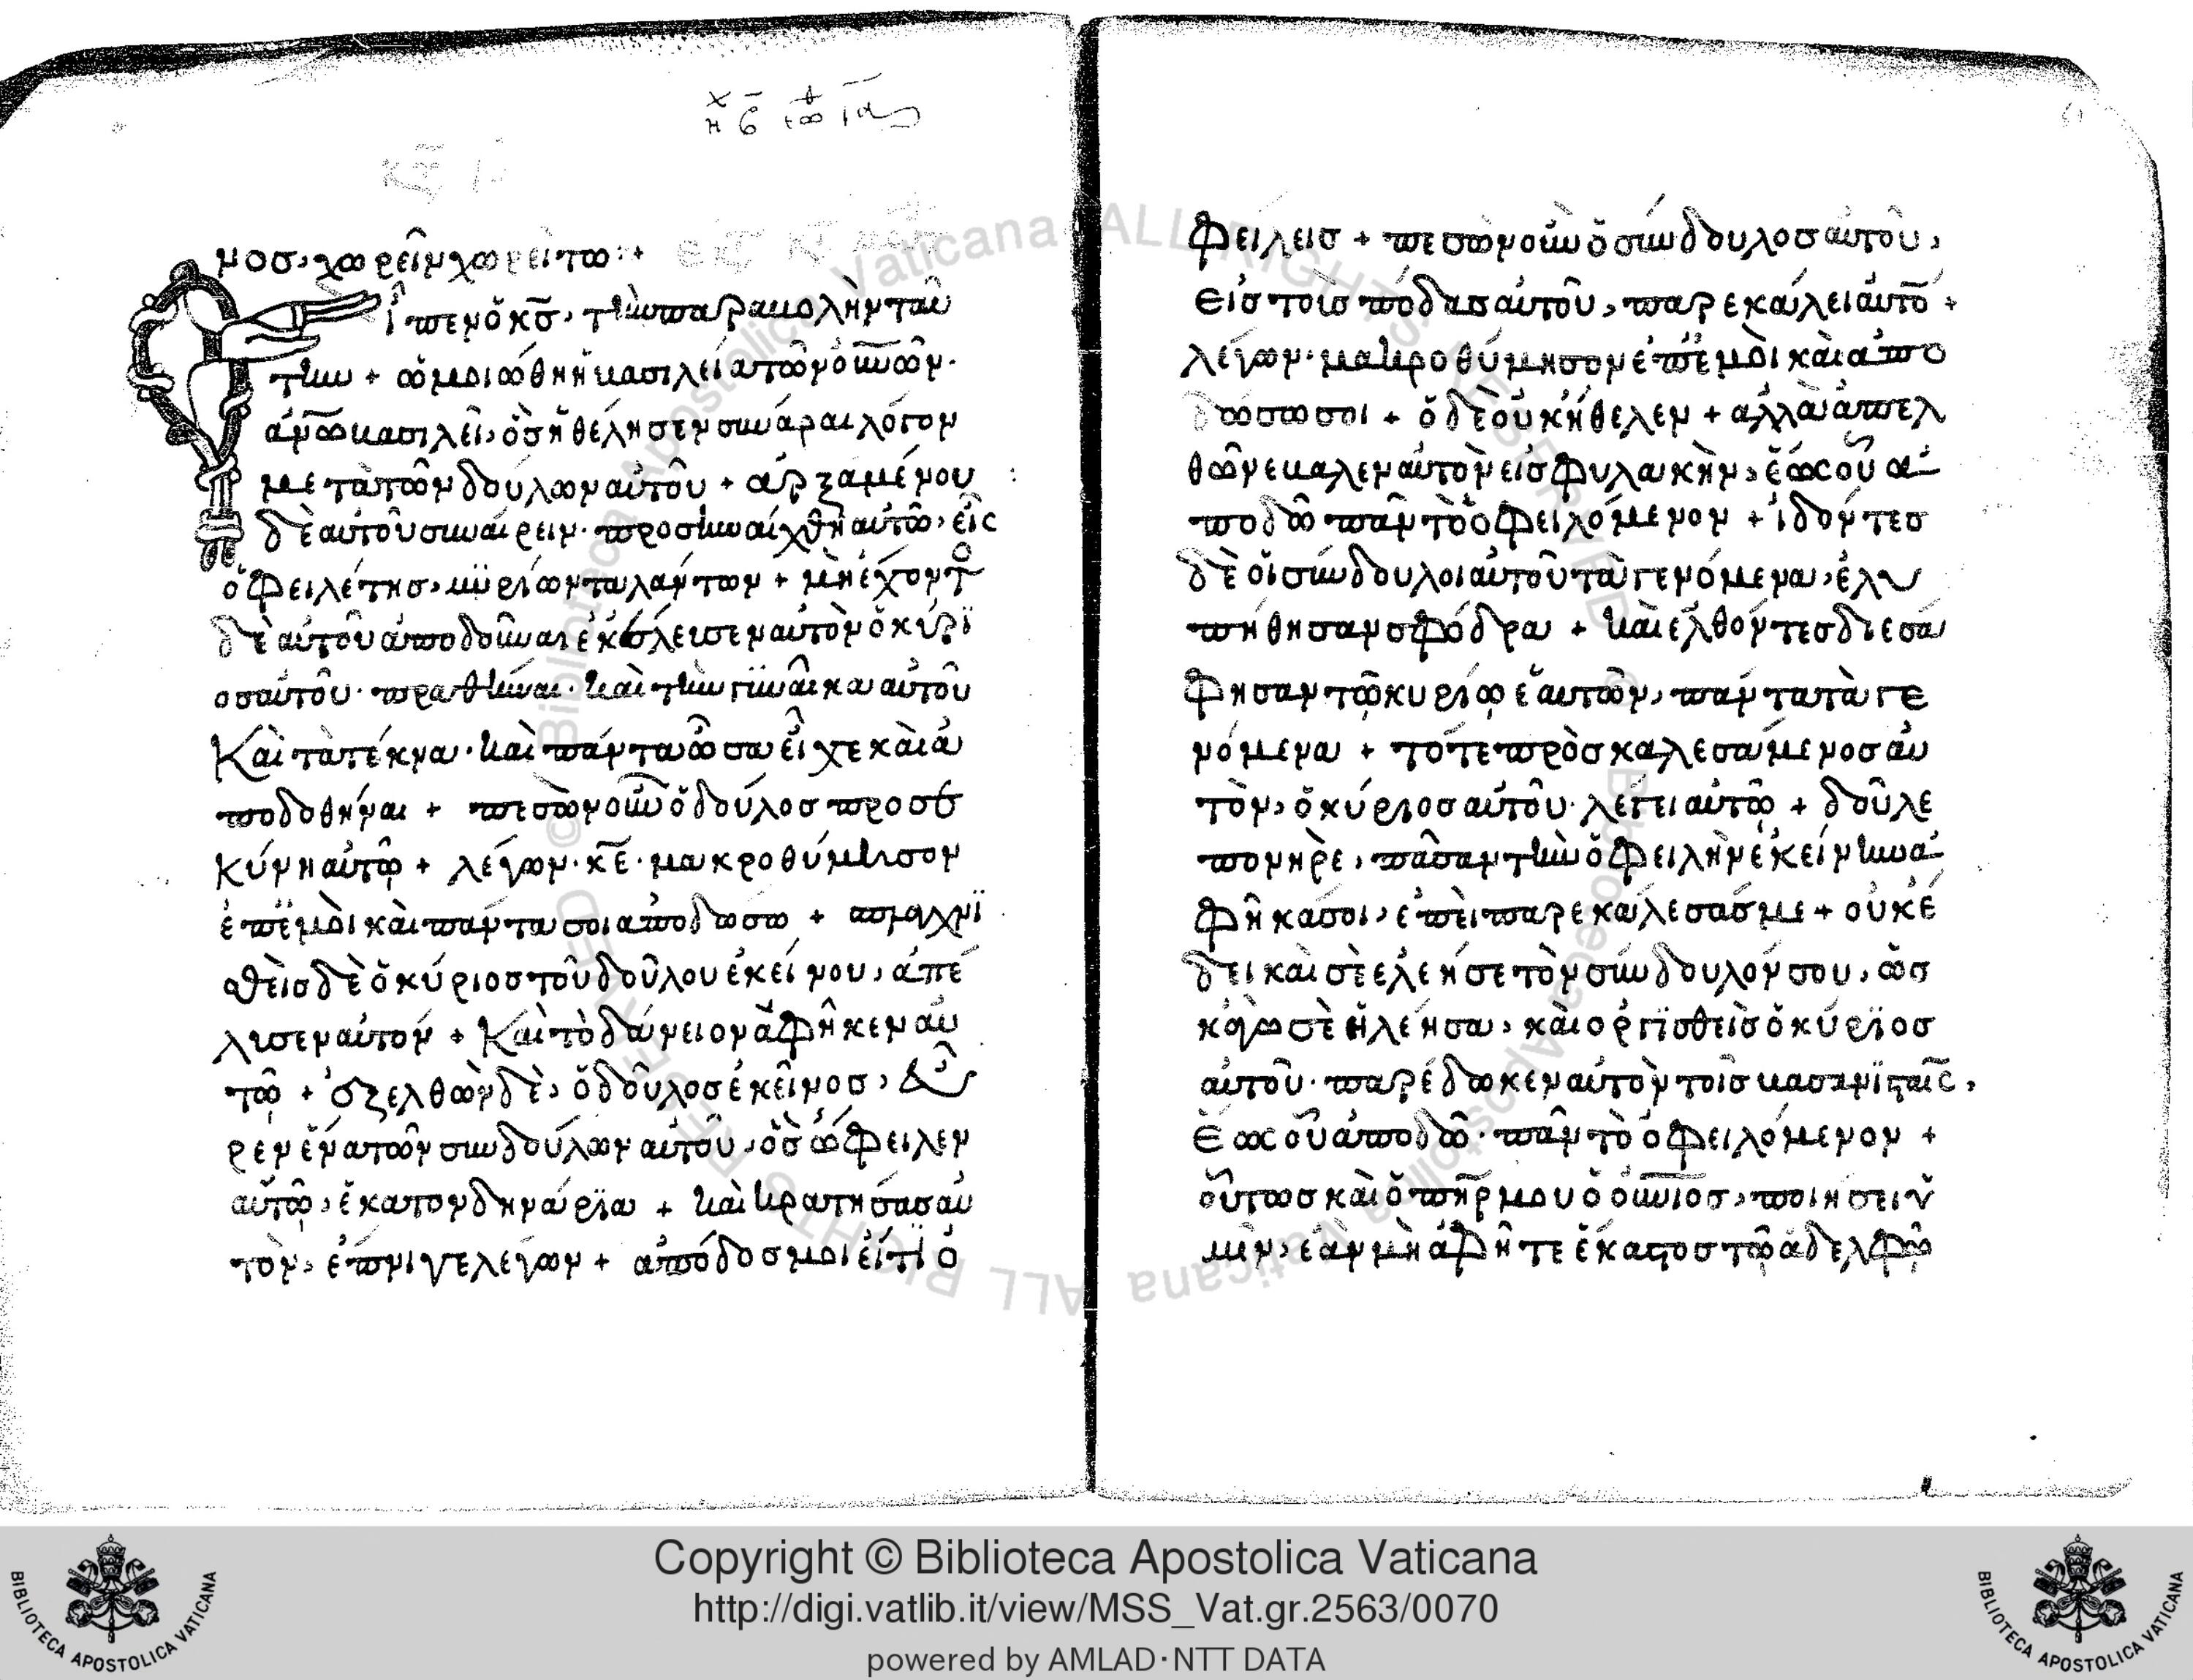 μοσ, χωρεῖν χωρείτω :+
Εἶπεν ὁ κ̅σ̅, τὴν παραβολὴν ταύ
την + ὡμοιώθη ἡ βασιλεία τῶν οὐ̅ν̅ῶν.
ἀν̅ω̅ βασιλεῖ, ὃσ ἠθέλησεν συνάραι λόγον
μετὰ τῶν δούλων αὐτοῦ + ἀρξαμένου
δὲ αὐτοῦ συναίρειν. προσηνέχθη αὐτῶ, εἷς
ὀφειλέτησ, μυρίων ταλάντων + μὴ ἔχοντο
δὲ αὐτοῦ ἀποδοῦναι ἐκέλευσεν αὐτὸν ὁ κύρι
οσ αὐτοῦ. πραθῆναι. καὶ τὴν γυναῖκα αὐτοῦ
Καὶ τὰ τέκνα. καὶ πάντα ὅσα εἶχε καὶ ἀ
ποδοθῆναι + πεσὼν οὖν ὁ δούλοσ προσε
κύνη αὐτῷ + λέγων. κ̅ε̅. μακροθύμησον
ἐπ' ἐμοὶ καὶ πάντα σοι ἀποδώσω + σπλαγχνι
σθεὶσ δὲ ὁ κύριοσ τοῦ δοῦλου ἐκείνου, ἀπέ
λυσεν αὐτον + Καὶ τὸ δάνειον ἀφῆκεν αὐ
τῷ + ἐξελθὼν δὲ, ὁ δοῦλοσ ἐκεῖνοσ, εὗ
ρεν ἕνα τῶν συνδούλων αὐτοῦ, ὃσ ὤφειλεν
αὐτῷ, ἑκατον δηνάρια + καὶ κρατήσασ αὐ
τὸν, ἔπνιγε λέγων + ἀπόδοσ μοι εἴ τι ὀ
φείλεισ + πεσὼν οὖν ὁ σύνδουλοσ αὐτοῦ,
εἰσ τοὺσ πόδασ αὐτοῦ, παρεκάλει αὐτο̅ +
λέγων. μακροθύμησον ἐπ' ἐμοὶ καὶ ἀπο
δώσω σοι + ὁ δὲ οὐκ ἤθελεν + ἀλλὰ ἀπελ
θῶν ἔβαλεν αὐτὸν εἰσ φυλακὴν, ἕως οὗ ἀ
ποδῶ πᾶν τὸ ὀφειλόμενον + ἰδόντεσ
δὲ οἱ σύνδουλοι αὐτοῦ τὰ γενόμενα, ἐλυ
πήθησαν σφόδρα + καὶ ἐλθόντεσ διεσά
φησαν τῷ κυρίῳ ἑαυτῶν, πάντα τὰ γε
νόμενα + τότε πρὸσκαλεσάμενοσ αὐ
τὸν, ὁ κύριοσ αὐτοῦ. λέγει αὐτῷ + δοῦλε
πονηρὲ, πᾶσαν τὴν ὀφειλὴν ἐκείνην ἀ
φῆκά σοι, ἐπεὶ παρεκάλεσάσ με + οὐκ ἔ
δει καὶ σὲ ἐλεῆσε τὸν σύνδουλόν σου, ὡσ
κἀγὼ σὲ ἠλέησα, καὶ ὀργισθεὶσ ὁ κύριοσ
αὐτοῦ. παρέδωκεν αὐτὸν τοῖσ βασανισταῖς,
Ἕως οὗ ἀποδῶ. πᾶν τὸ ὀφειλόμενον +
οὕτωσ καὶ ὁ π̅η̅ρ̅ μου ὁ οὐ̅ν̅ιοσ, ποιήσει ὑ
μῖν, ἐὰν μὴ ἀφῆτε ἕκαστοσ τῷ ἀδελφῷ
Copyright © Biblioteca Apostolica Vaticana
http://digi.vatlib.it/view/MSS_Vat.gr.2563/0070
powered by AMLAD·NTT DATA
BIBLIOTECA APOSTOLICA VATICANA
BIBLIOTECA APOSTOLICA VATICANA